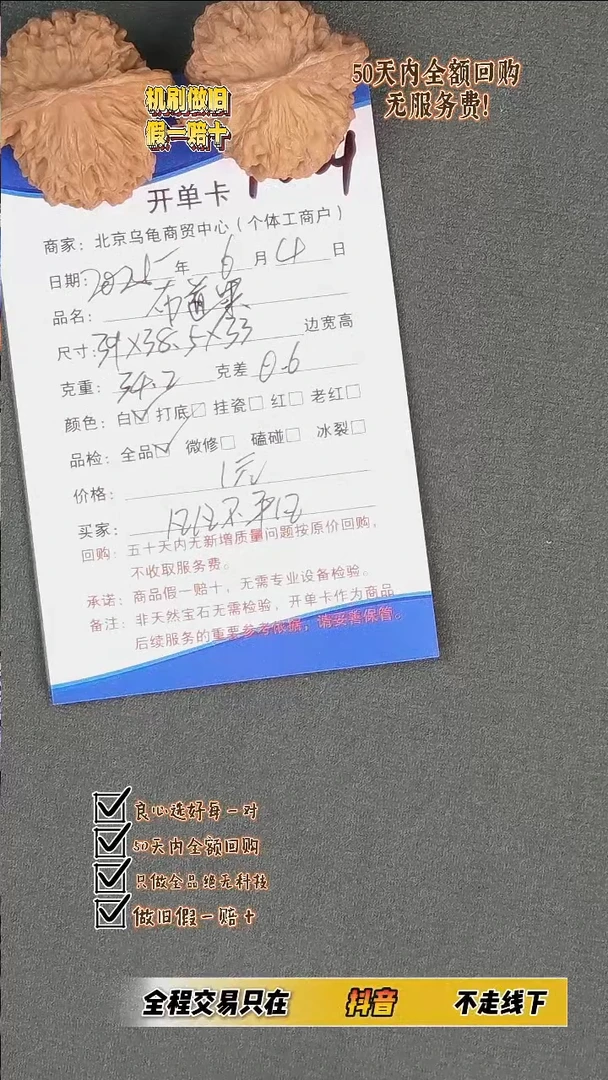 机刷做旧
假一赔十
50天内全额回购
无服务费!
开单卡
商家：北京乌龟商贸中心（个体工商户）
日期：2025年6月4日
品名：
尺寸：39X38.5X33 边宽高
克重：34.2 克差 0.6
颜色：白☑ 打底☐ 挂瓷☐ 红☐ 老红☐
品检：全品☑ 微修☐ 磕碰☐ 冰裂☐
价格：1元
买家：
回购：五十天内无新增质量问题按原价回购，
不收取服务费。
承诺：商品假一赔十，无需专业设备检验。
备注：非天然宝石无需检验，开单卡作为商品
后续服务的重要参考依据，请妥善保管。
良心选好每一对
50天内全额回购
只做全品绝无科技
做旧假一赔十
全程交易只在 抖音 不走线下